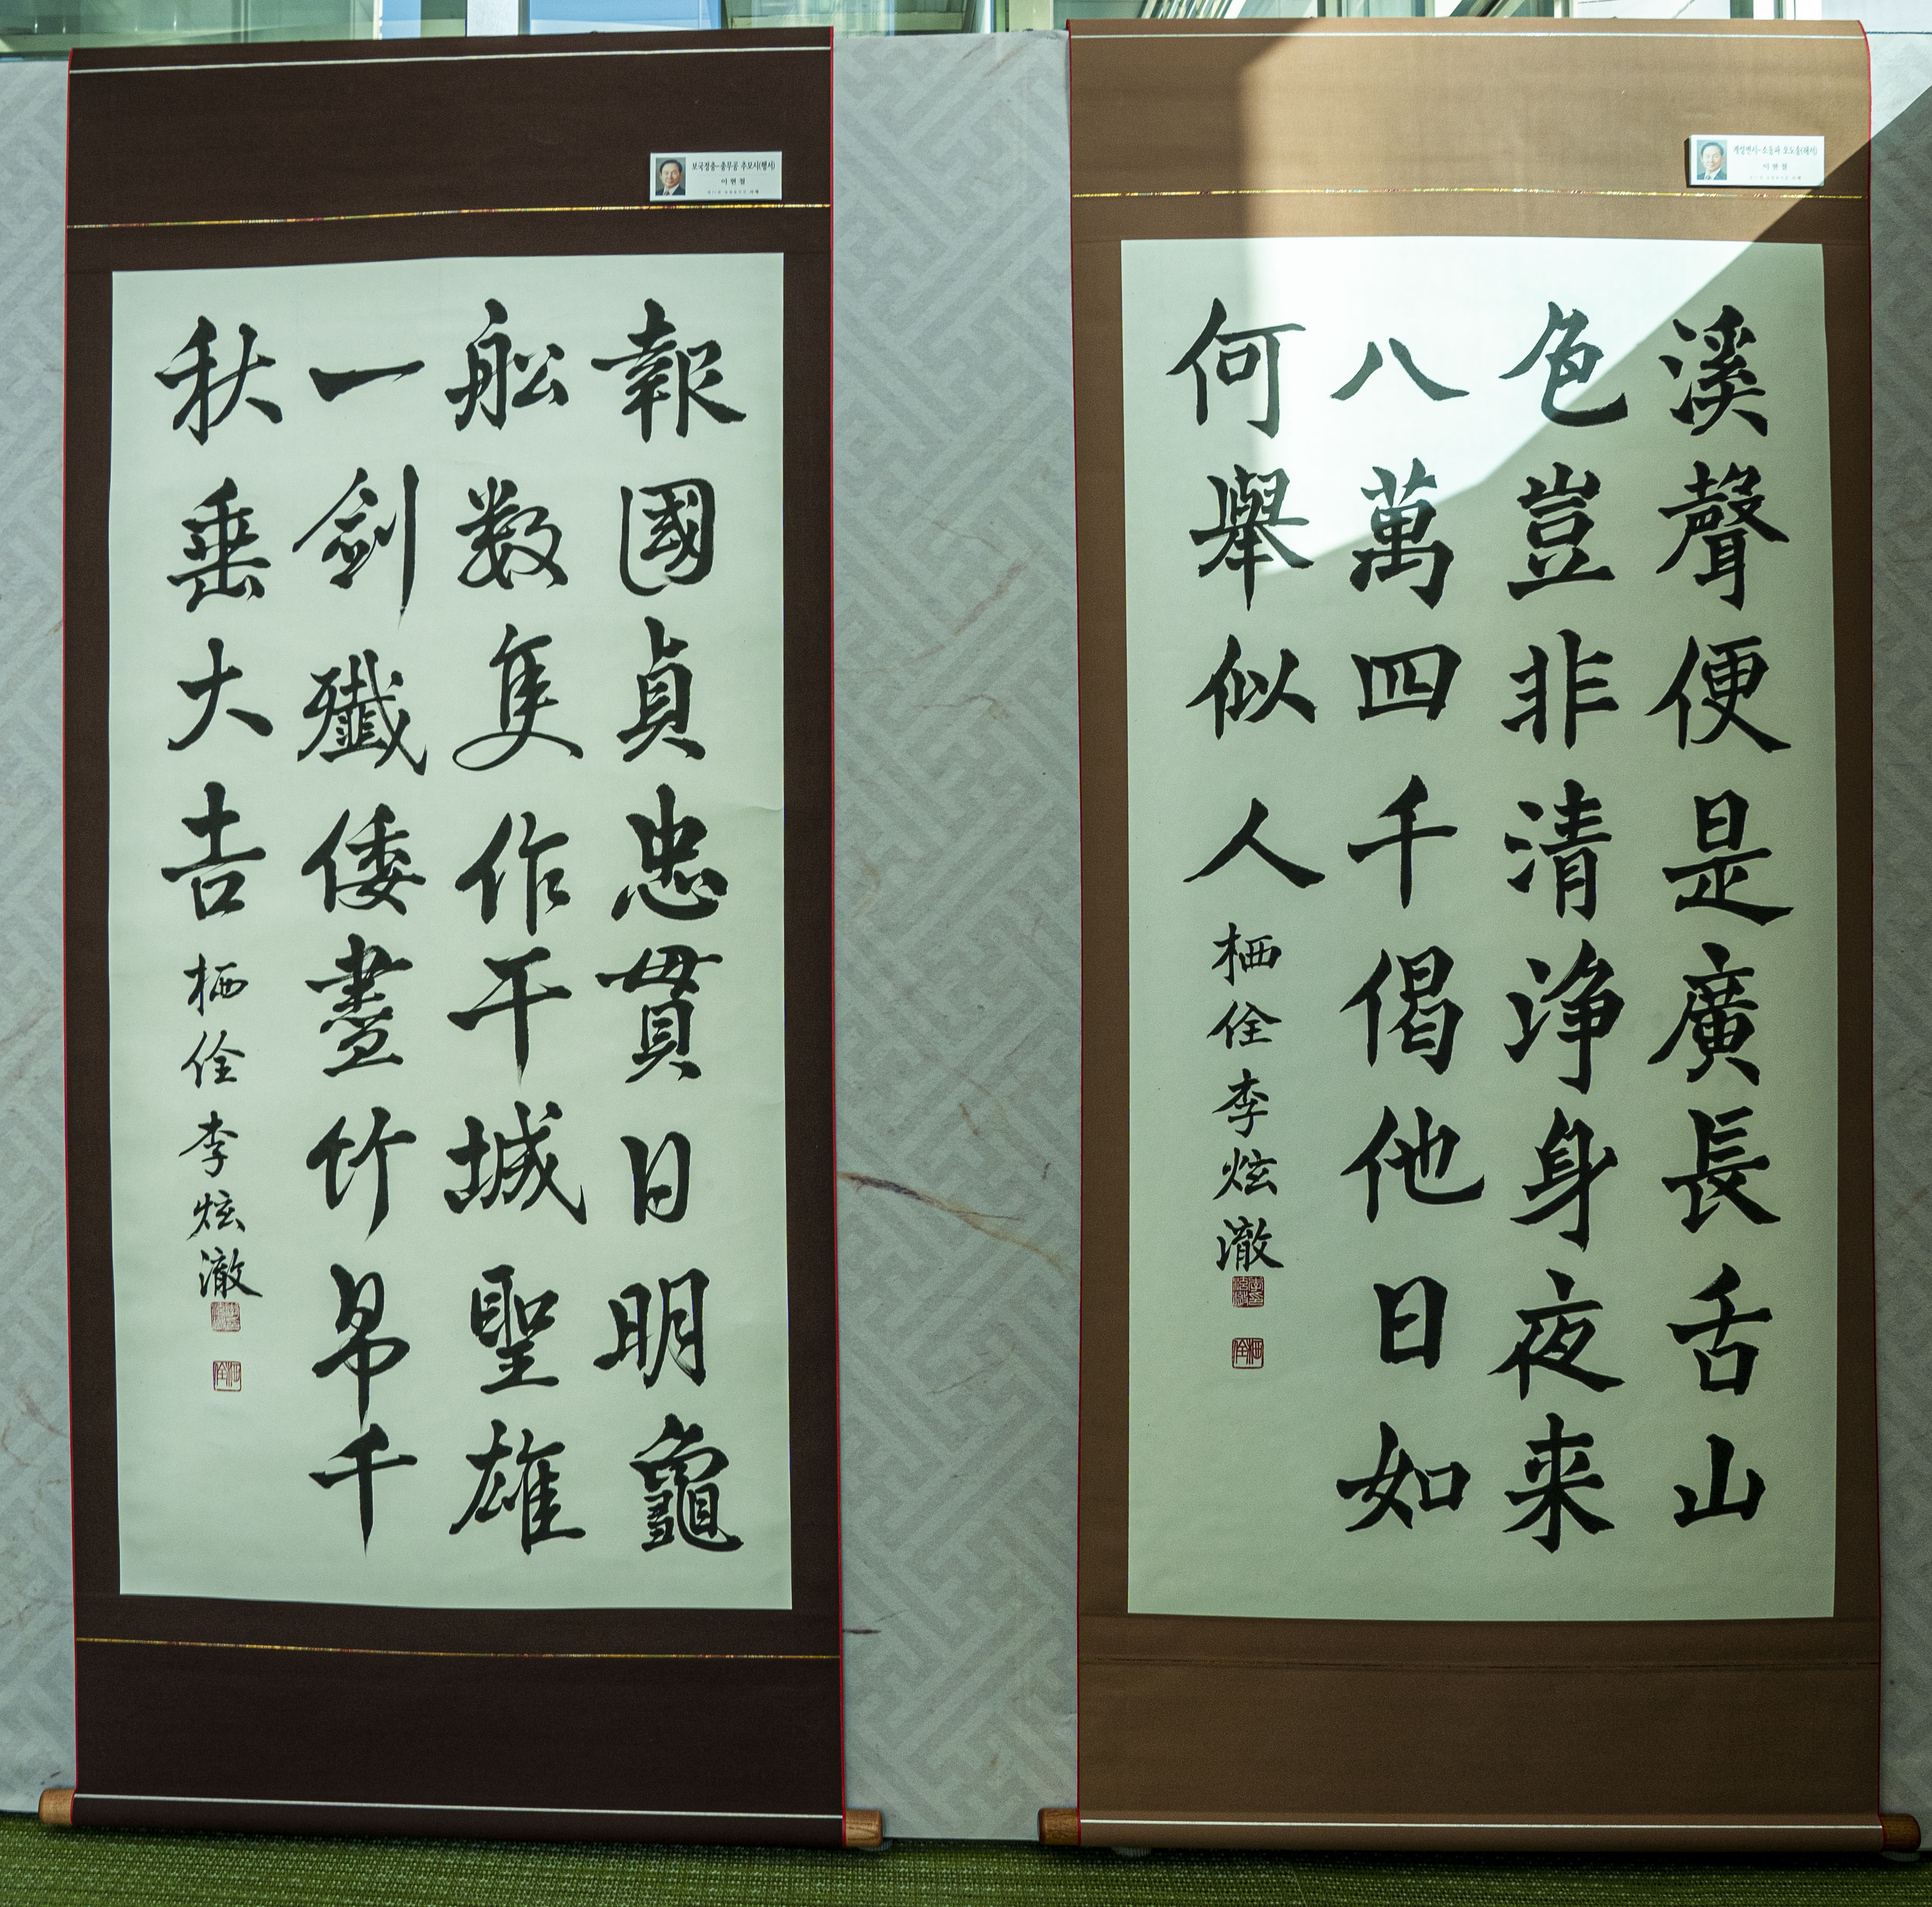 계성변시-소동파 오도송(해서)
이현철
溪聲便是廣長舌山
色豈非清淨身夜来
八萬四千偈他日如
何舉似人 栖佺 李炫澈
보국정충-충무공 추모시(행서)
이현철
報國貞忠貫日明龜
舩数隻作干城聖雄
一劍殲倭盡竹帛千
秋垂大吉 栖佺 李炫澈